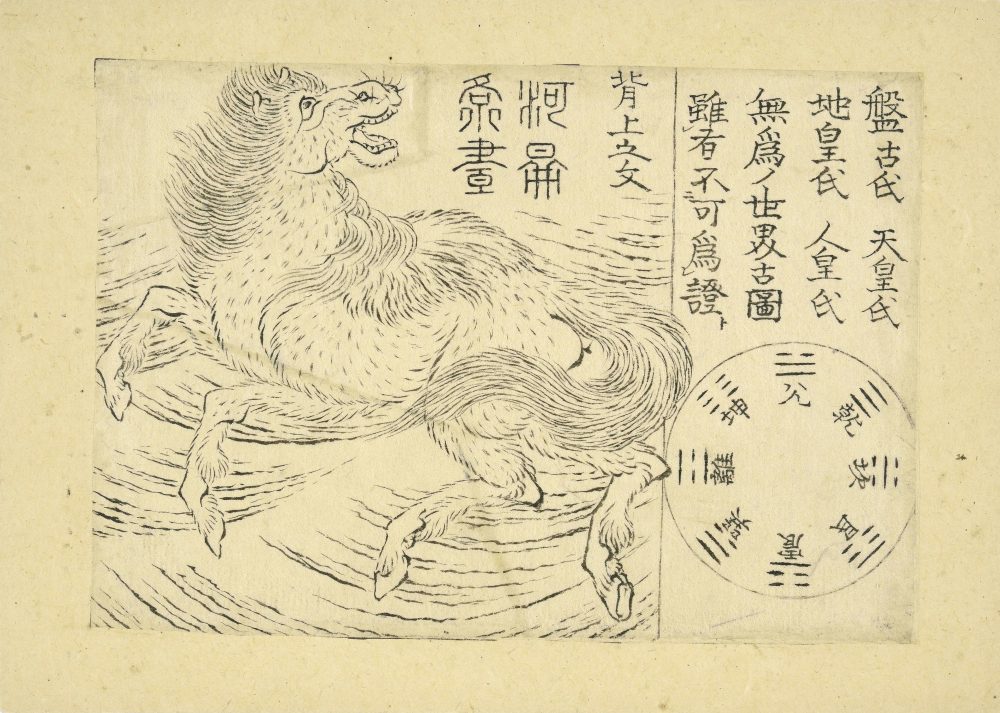 盤古氏 天皇氏
地皇氏 人皇氏
無爲ノ世界古圖
雖有不可爲證ト
背上之文
河
畫
兌
乾
坎
艮
震
巽
離
坤